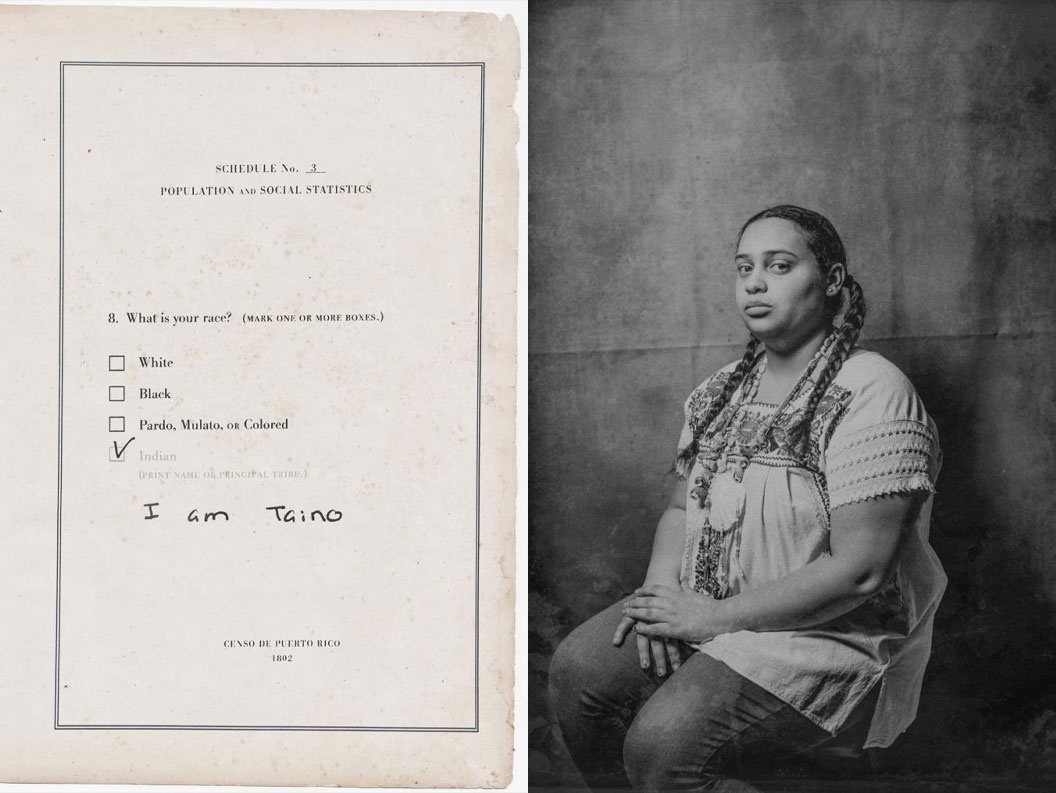 SCHEDULE No. 3
POPULATION AND SOCIAL STATISTICS
8. What is your race? (MARK ONE OR MORE BOXES.)
White
Black
Pardo, Mulato, OR Colored
Indian
(PRINT NAME OF PRINCIPAL TRIBE.)
I am Taino
CENSO DE PUERTO RICO
1802